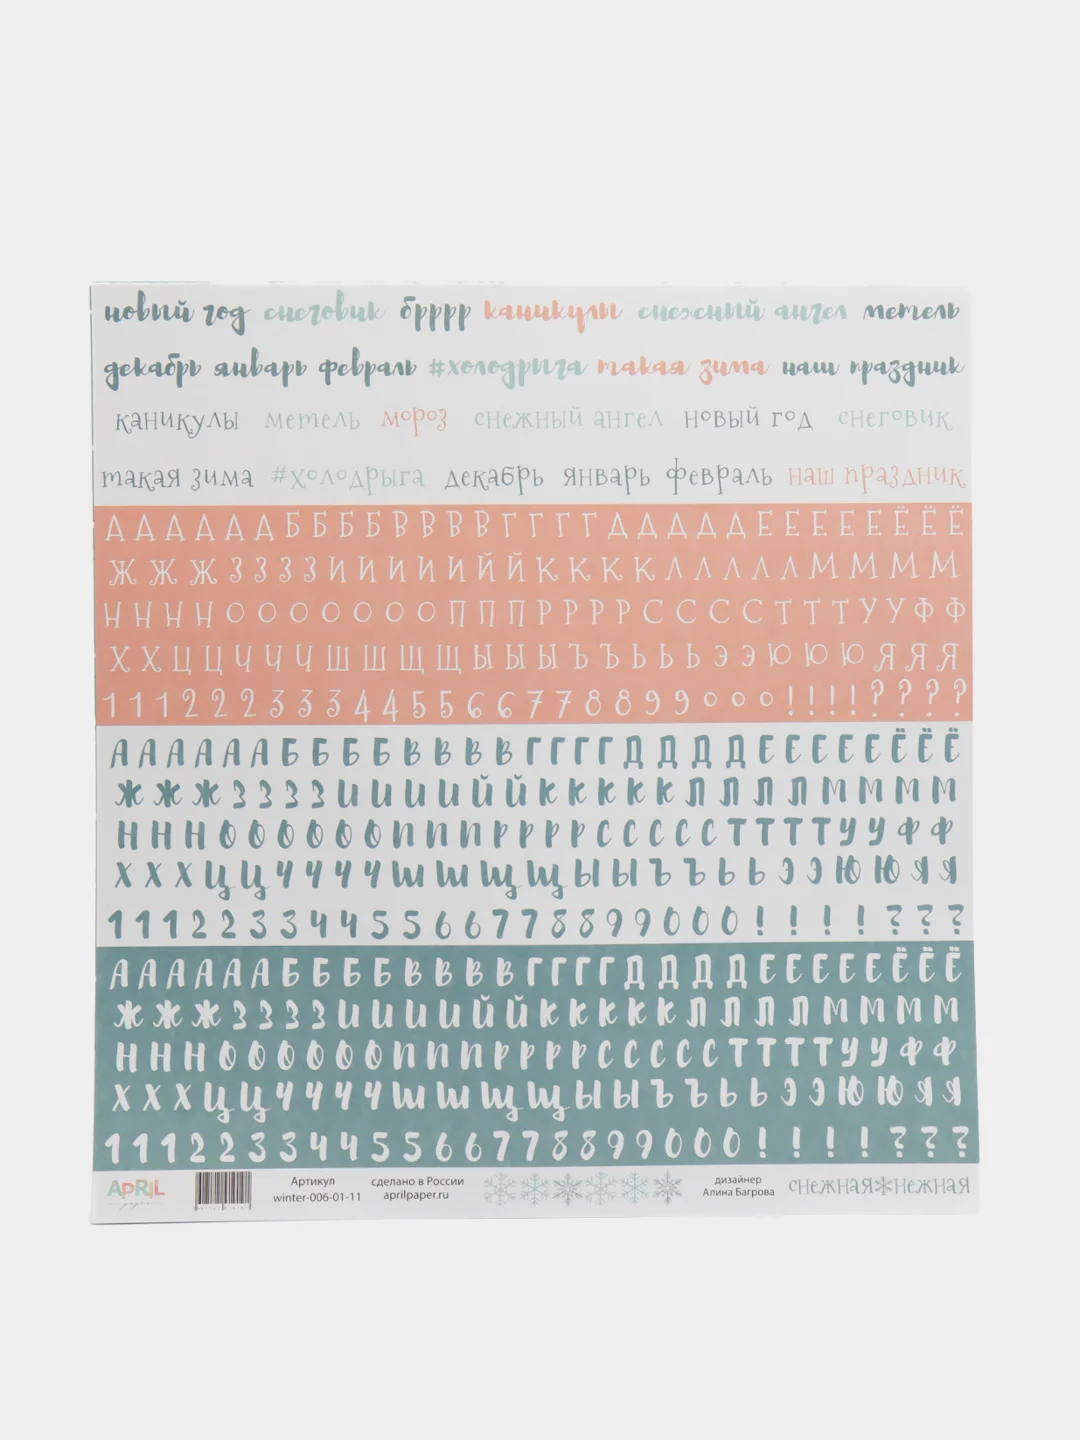 новый год снеговик брррр каникулы снежный ангел метель
декабрь январь февраль #холодрыга такая зима наш праздник
каникулы метель мороз снежный ангел новый год снеговик
такая зима #холодрыга декабрь январь февраль наш праздник
А А А А А А Б Б Б Б В В В В Г Г Г Г Д Д Д Д Д Е Е Е Е Е Ё Ё Ё
Ж Ж Ж З З З З И И И И И Й Й К К К К Л Л Л Л Л М М М М
Н Н Н Н О О О О О О О П П П Р Р Р Р С С С С Т Т Т У У Ф Ф
Х Х Ц Ц Ч Ч Ч Ш Ш Щ Щ Ы Ы Ы Ъ Ъ Ь Ь Ь Э Э Ю Ю Ю Я Я Я
1 1 1 2 2 2 3 3 3 4 4 5 5 6 6 7 7 8 8 9 9 0 0 0 ! ! ! ! ? ? ? ?
А А А А А А Б Б Б Б В В В В Г Г Г Г Д Д Д Д Е Е Е Е Е Ё Ё Ё
Ж Ж Ж З З З З И И И И Й Й К К К К К Л Л Л Л М М М М
Н Н Н О О О О О О П П П Р Р Р Р С С С С С Т Т Т Т У У Ф Ф
Х Х Х Ц Ц Ч Ч Ч Ч Ш Ш Щ Щ Ы Ы Ъ Ъ Ь Ь Э Э Ю Ю Я Я
1 1 1 2 2 3 3 4 4 5 5 6 6 7 7 8 8 9 9 0 0 0 ! ! ! ! ? ? ?
А А А А А А Б Б Б Б В В В В Г Г Г Г Д Д Д Д Е Е Е Е Е Ё Ё Ё
Ж Ж Ж З З З З И И И И Й Й К К К К К Л Л Л Л М М М М
Н Н Н О О О О О О П П П Р Р Р Р С С С С С Т Т Т Т У У Ф Ф
Х Х Х Ц Ц Ч Ч Ч Ч Ш Ш Щ Щ Ы Ы Ъ Ъ Ь Ь Э Э Ю Ю Я Я
1 1 1 2 2 3 3 4 4 5 5 6 6 7 7 8 8 9 9 0 0 0 ! ! ! ! ? ? ?
APRIL
paper
Артикул
winter-006-01-11
сделано в России
aprilpaper.ru
дизайнер
Алина Багрова
снежная нежная